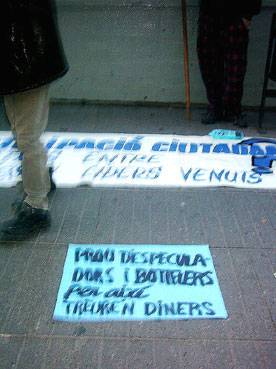 IPACIÓ CIUTADA
ENTRE
LIDERS VENUIS
PROU D'ESPECULA
DORS I BOTIFLERS
per així
TREURE'N DINERS